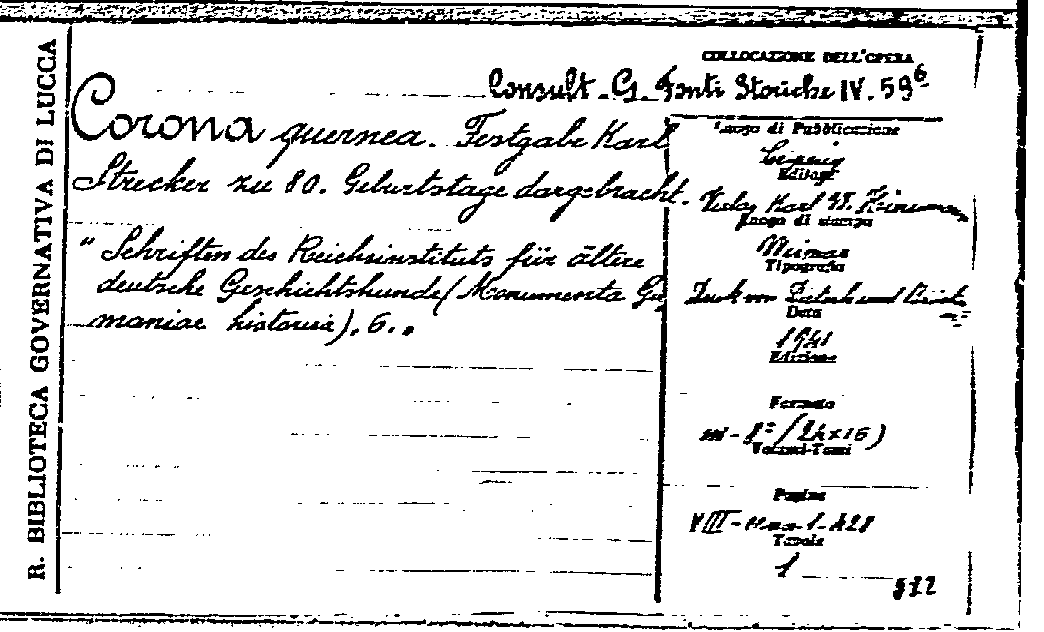 R. BIBLIOTECA GOVERNATIVA DI LUCCA
COLLOCAZIONE DELL'OPERA
Consult. G. Fonti Storiche IV. 59⁶
Corona quernea. Festgabe Karl
Strecker zu 80. Geburtstage dargebracht.
"Schriften des Reichsinstituts für ältere
deutsche Geschichtskunde (Monumenta Ger
maniae historica), 6."
Luogo di Pubblicazione
Leipzig
Editore
Verlag Karl W. Hiersemann
Luogo di stampa
Weimar
Tipografia
Druck von
Data
1941
Edizione
Formato
in-8° (24x16)
Volumi-Tomi
Pagine
VIII - 1-428
Tavole
1